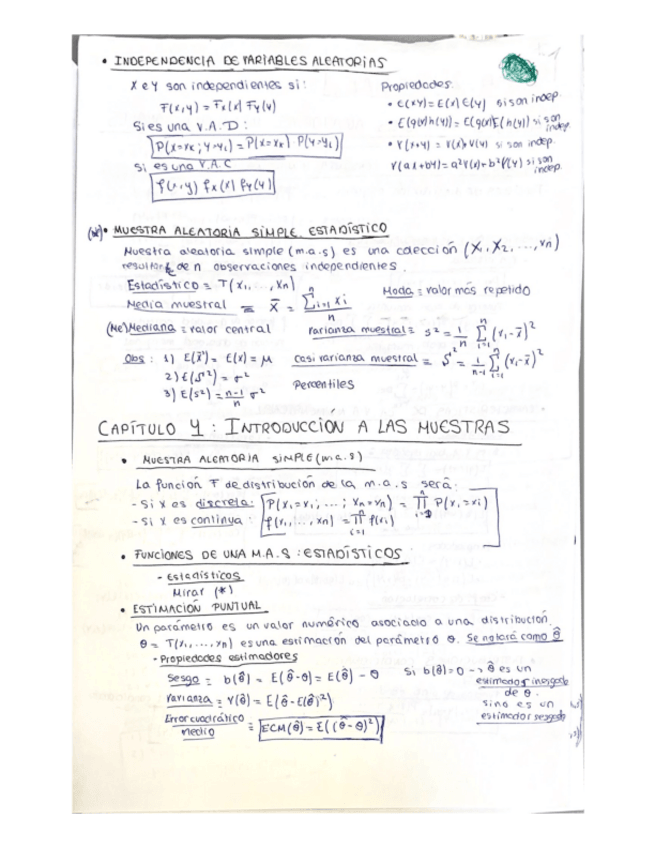 • INDEPENDENCIA DE VARIABLES ALEATORIAS
X e Y son independientes si:
F(x,y) = Fx(x) Fy(y)
Si es una V.A.D:
P(X=xk; Y=yi) = P(X=xk) P(Y=yi)
si es una V.A.C
f(x,y) fx(x) fy(y)
Propiedades:
• E(XY) = E(X) E(Y) si son indep.
• E(g(x) h(y)) = E(g(x)) E(h(y)) si son indep.
• V(x+y) = V(x)+V(y) si son indep.
V(ax+by) = a²V(x)+b²V(y) si son indep.
(*) • MUESTRA ALEATORIA SIMPLE. ESTADÍSTICO
Muestra aleatoria simple (m.a.s) es una colección (X1, X2, ..., Xn)
resultante de n observaciones independientes.
Estadístico = T(x1, ..., xn)
Moda = valor más repetido
Media muestral = X̄ = Σ_{i=1}^{n} xi / n
(Me) Mediana = valor central
varianza muestral = s² = 1/n Σ_{i=1}^{n} (xi - x̄)²
Obs: 1) E(X̄) = E(x) = μ
casi varianza muestral = S'² = 1/(n-1) Σ_{i=1}^{n} (xi - x̄)²
2) E(S'²) = σ²
Percentiles
3) E(s²) = (n-1)/n σ²
CAPÍTULO 4: INTRODUCCIÓN A LAS MUESTRAS
• MUESTRA ALEATORIA SIMPLE (m.a.s)
La función F de distribución de la m.a.s será:
- Si X es discreta: P(X1=x1; ...; Xn=xn) = Π_{i=1}^{n} P(Xi=xi)
- Si X es continua: f(x1, ..., xn) = Π_{i=1}^{n} f(xi)
• FUNCIONES DE UNA M.A.S: ESTADÍSTICOS
- Estadísticos
Mirar (*)
• ESTIMACIÓN PUNTUAL
Un parámetro es un valor numérico asociado a una distribución.
θ = T(x1, ..., xn) es una estimación del parámetro θ. Se notará como θ̂
- Propiedades estimadores
Sesgo = b(θ̂) = E(θ̂-θ) = E(θ̂) - θ
Varianza = V(θ̂) = E(θ̂-E(θ̂)²)
Error cuadrático medio = ECM(θ̂) = E((θ̂-θ)²)
Si b(θ̂)=0 → θ̂ es un
estimador insesgado
de θ.
sino es un
estimador sesgado